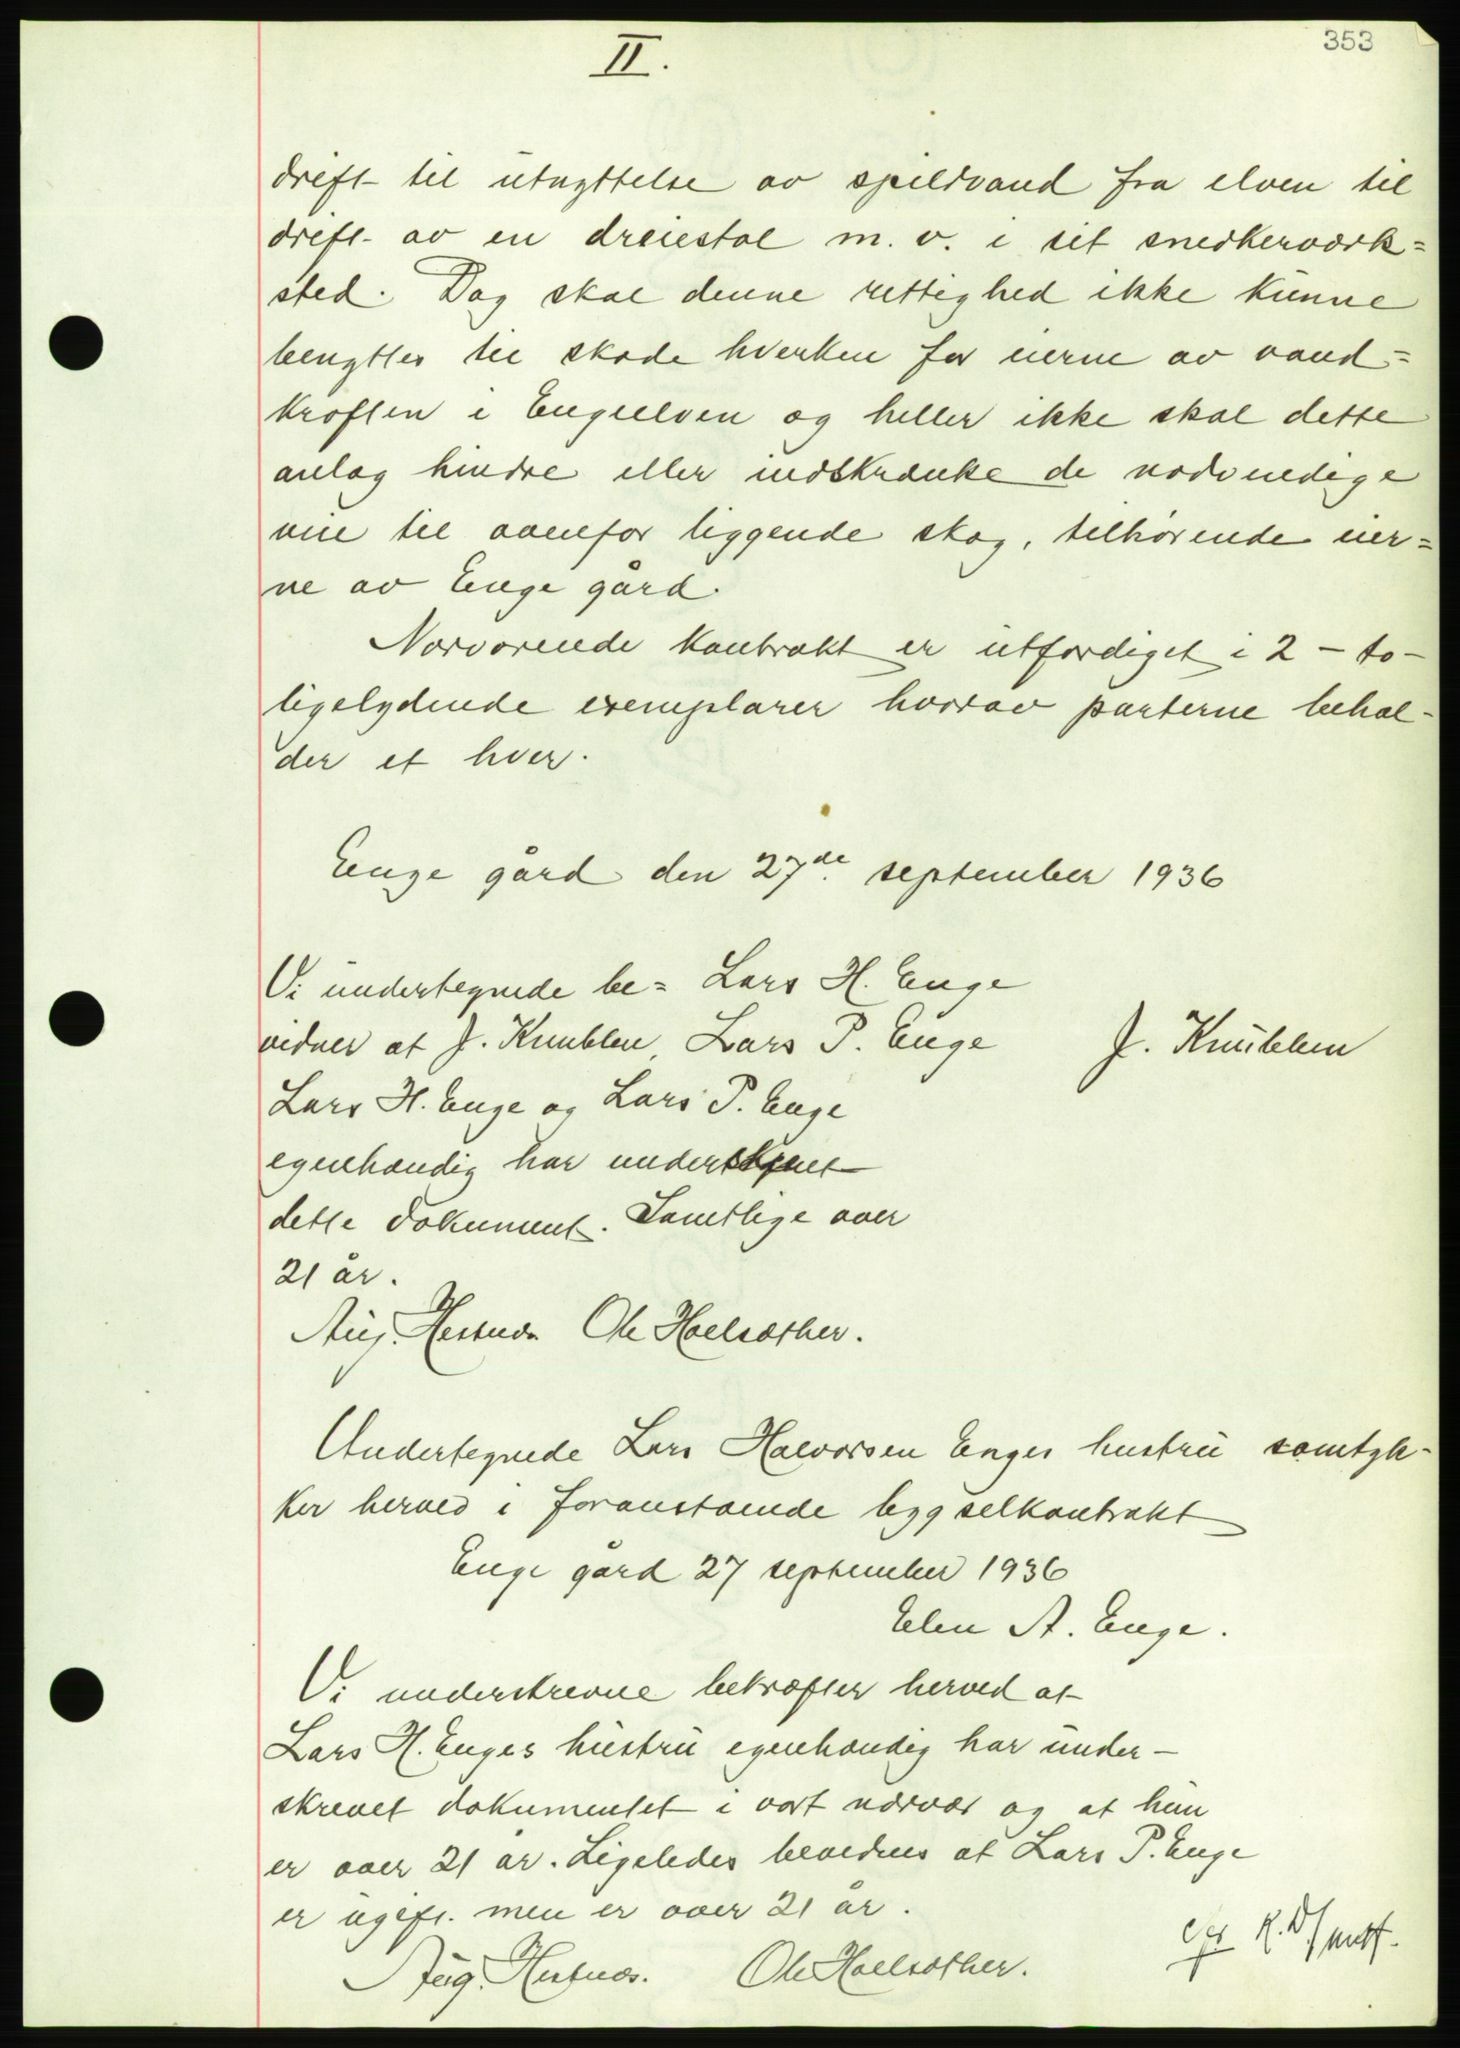 353
II.
drift til utnyttelse av spildvand fra elven til
drift av en dreiestol m. v. i sit snedkerværk=
sted. Dog skal denne rettighed ikke kunne
benyttes til skade hverken for eierne av vand=
kraften i Engeelven og heller ikke skal dette
anlæg hindre eller indskrænke de nødvendige
veie til ovenfor liggende skog, tilhørende eier=
ne av Enge gård.
Nærværende kontrakt er utfærdiget i 2 - to -
ligelydende exemplarer hvorav parterne behol-
der et hver.
Enge gård den 27de september 1936
Vi undertegnede be= Lars H. Enge
vidner at J. Knubben, Lars P. Enge J. Knubben
Lars H. Enge og Lars P. Enge
egenhændig har underskrevet
dette dokument. Samtlige over
21 år.
Aug. Hestnes. Ole Hoelsæther.
Undertegnede Lars Halvorsen Enges hustru samtyk-
ker herved i foranstående bygselkontrakt
Enge gård 27 september 1936
Elen A. Enge.
Vi underskrevne bekræfter herved at
Lars H. Enges hustru egenhændig har under-
skrevet dokumentet i vort nærvær og at hun
er over 21 år. Ligeledes bevidnes at Lars P. Enge
er ugift. men er over 21 år.
Aug. Hestnes. Ole Hoelsæther.